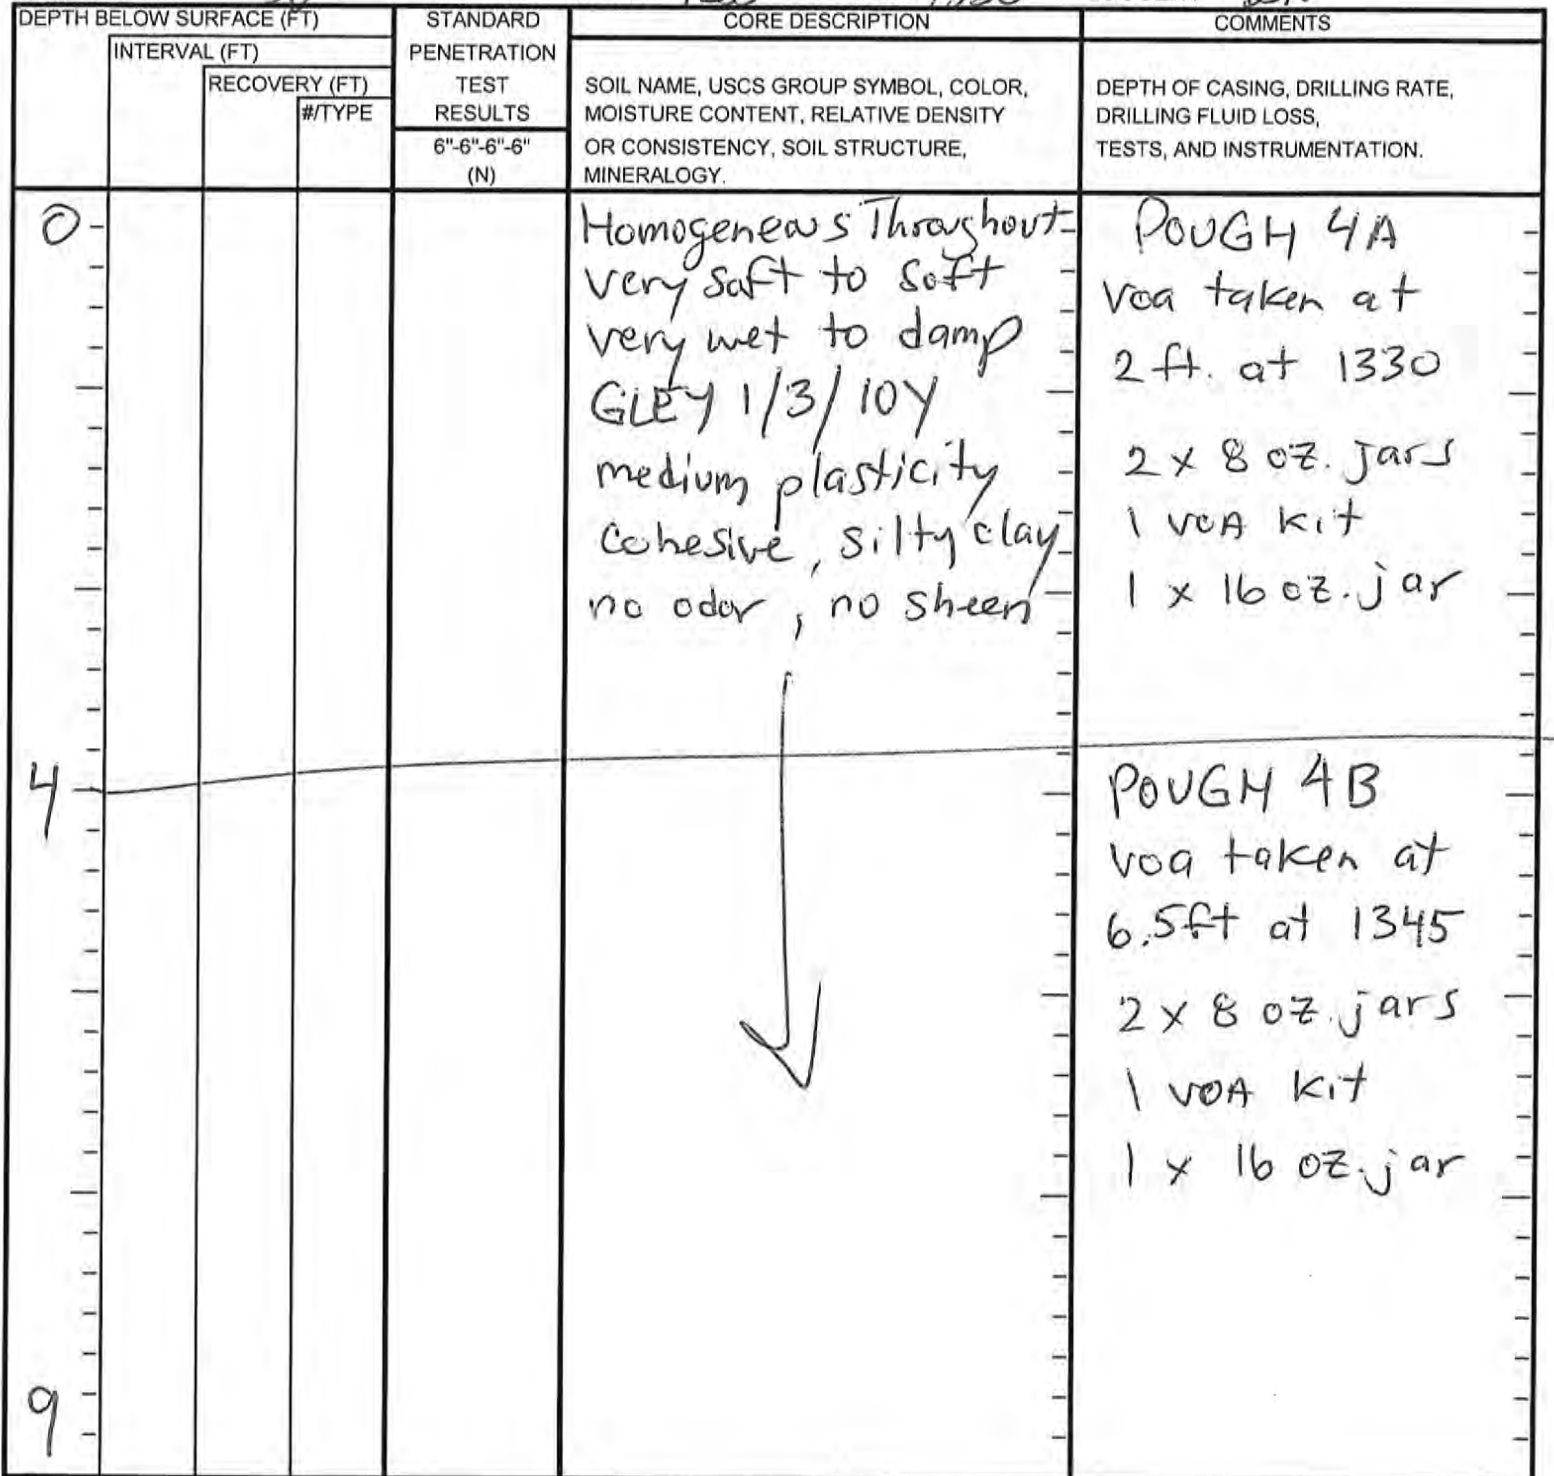 DEPTH BELOW SURFACE (FT)
INTERVAL (FT)
RECOVERY (FT)
#/TYPE
STANDARD
PENETRATION
TEST
RESULTS
6"-6"-6"-6"
(N)
CORE DESCRIPTION
SOIL NAME, USCS GROUP SYMBOL, COLOR,
MOISTURE CONTENT, RELATIVE DENSITY
OR CONSISTENCY, SOIL STRUCTURE,
MINERALOGY.
COMMENTS
DEPTH OF CASING, DRILLING RATE,
DRILLING FLUID LOSS,
TESTS, AND INSTRUMENTATION.
0
Homogeneous Throughout
very soft to soft
very wet to damp
GLEY 1/3/10Y
medium plasticity
cohesive, silty clay
no odor, no sheen
POUGH 4A
voa taken at
2 ft. at 1330
2 x 8 oz. jars
1 VOA kit
1 x 16 oz. jar
4
POUGH 4B
voa taken at
6.5ft at 1345
2 x 8 oz. jars
1 VOA kit
1 x 16 oz. jar
9